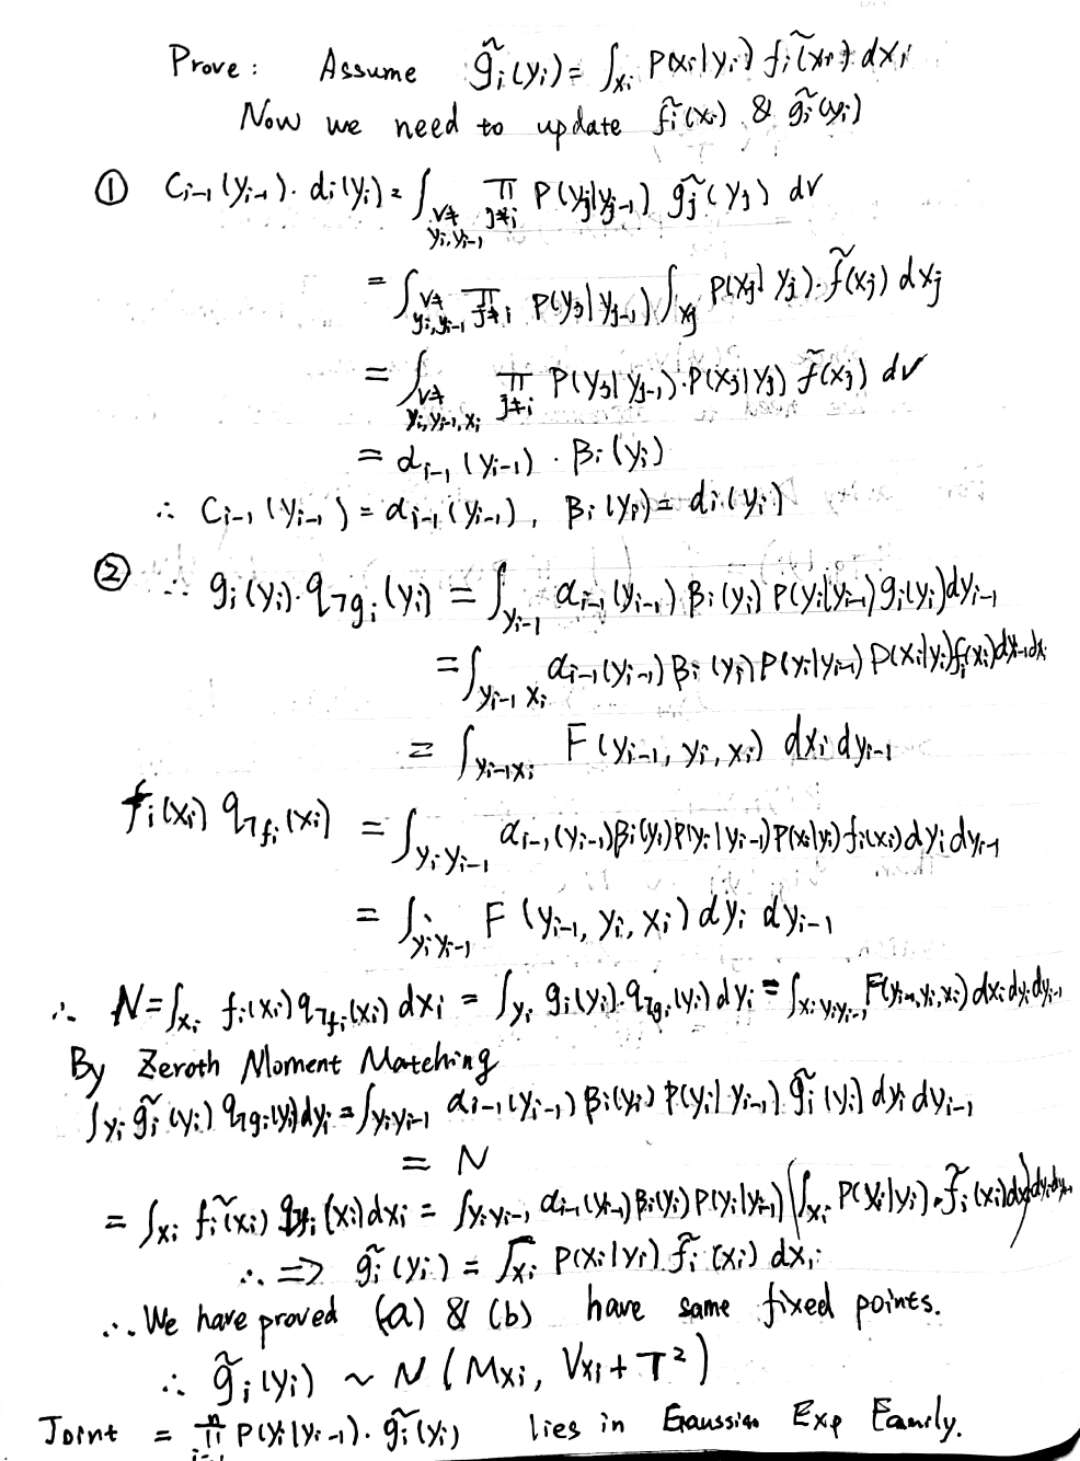 Prove : Assume g̃ᵢ(yᵢ) = ∫_{xᵢ} P(xᵢ|yᵢ) f̃ᵢ(xᵢ) dxᵢ
Now we need to update f̃ᵢ(xᵢ) & g̃ᵢ(yᵢ)
① C_{i-1}(y_{i-1}) · dᵢ(yᵢ) = ∫_{∀≠ yᵢ,y_{i-1}} ∏_{j≠i} P(y_j|y_{j-1}) g̃_j(y_j) dv
= ∫_{∀≠ yᵢ,y_{i-1}} ∏_{j≠i} P(y_j|y_{j-1}) ∫_{x_j} P(x_j|y_j) · f̃(x_j) dx_j
= ∫_{∀≠ yᵢ,y_{i-1},xᵢ} ∏_{j≠i} P(y_j|y_{j-1}) · P(x_j|y_j) f̃(x_j) dv
= α_{i-1}(y_{i-1}) · βᵢ(yᵢ)
∴ C_{i-1}(y_{i-1}) = α_{i-1}(y_{i-1}) , βᵢ(yᵢ) = dᵢ(yᵢ)
② ∴ gᵢ(yᵢ) · q_{¬gᵢ}(yᵢ) = ∫_{y_{i-1}} α_{i-1}(y_{i-1}) βᵢ(yᵢ) P(yᵢ|y_{i-1}) gᵢ(yᵢ) dy_{i-1}
= ∫_{y_{i-1} xᵢ} α_{i-1}(y_{i-1}) βᵢ(yᵢ) P(yᵢ|y_{i-1}) P(xᵢ|yᵢ) fᵢ(xᵢ) dy_{i-1} dxᵢ
= ∫_{y_{i-1} xᵢ} F(y_{i-1}, yᵢ, xᵢ) dxᵢ dy_{i-1}
fᵢ(xᵢ) q_{¬fᵢ}(xᵢ) = ∫_{yᵢ y_{i-1}} α_{i-1}(y_{i-1}) βᵢ(yᵢ) P(yᵢ|y_{i-1}) P(xᵢ|yᵢ) fᵢ(xᵢ) dyᵢ dy_{i-1}
= ∫_{yᵢ y_{i-1}} F(y_{i-1}, yᵢ, xᵢ) dyᵢ dy_{i-1}
∴ N = ∫_{xᵢ} fᵢ(xᵢ) q_{¬fᵢ}(xᵢ) dxᵢ = ∫_{yᵢ} gᵢ(yᵢ) · q_{¬gᵢ}(yᵢ) dyᵢ = ∫_{xᵢ yᵢ y_{i-1}} F(y_{i-1}, yᵢ, xᵢ) dxᵢ dyᵢ dy_{i-1}
By Zeroth Moment Matching
∫_{yᵢ} g̃ᵢ(yᵢ) q_{¬gᵢ}(yᵢ) dyᵢ = ∫_{yᵢ y_{i-1}} α_{i-1}(y_{i-1}) βᵢ(yᵢ) P(yᵢ|y_{i-1}) g̃ᵢ(yᵢ) dyᵢ dy_{i-1}
= N
= ∫_{xᵢ} f̃ᵢ(xᵢ) q_{¬fᵢ}(xᵢ) dxᵢ = ∫_{yᵢ y_{i-1}} α_{i-1}(y_{i-1}) βᵢ(yᵢ) P(yᵢ|y_{i-1}) (∫_{xᵢ} P(xᵢ|yᵢ) · f̃ᵢ(xᵢ) dxᵢ) dyᵢ dy_{i-1}
∴ ⇒ g̃ᵢ(yᵢ) = ∫_{xᵢ} P(xᵢ|yᵢ) f̃ᵢ(xᵢ) dxᵢ
∴ We have proved (a) & (b) have same fixed points.
∴ g̃ᵢ(yᵢ) ~ N(M_{xᵢ}, V_{xᵢ} + T²)
Joint = ∏ⁿ P(yᵢ|y_{i-1}) · g̃ᵢ(yᵢ) lies in Gaussian Exp Family.